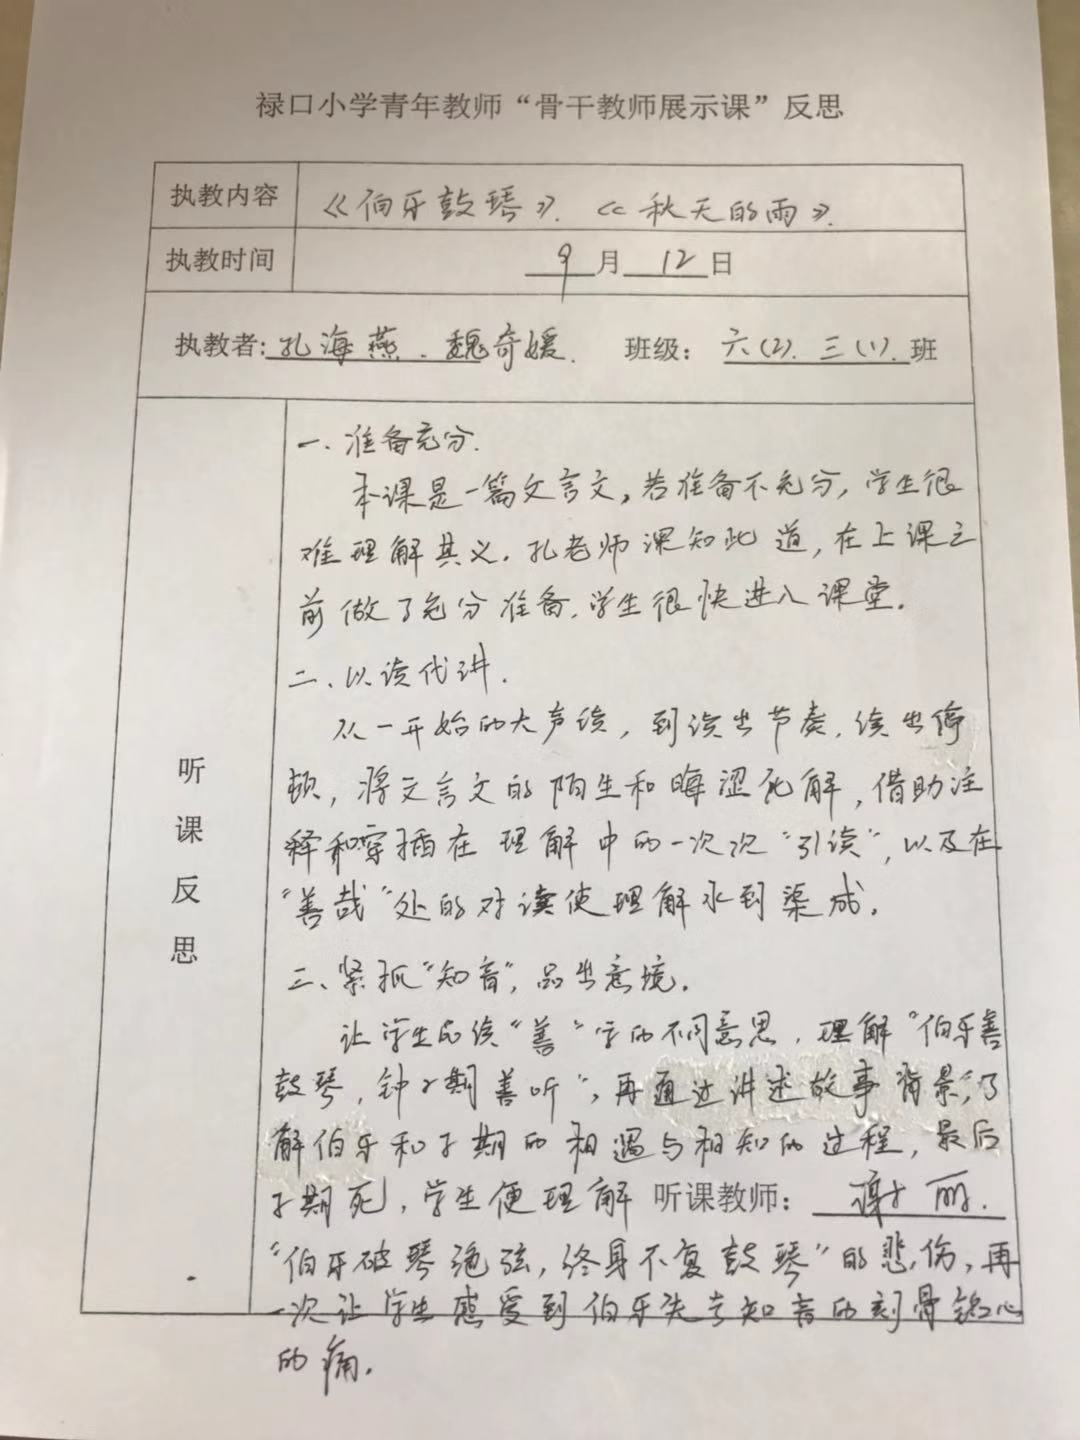 禄口小学青年教师“骨干教师展示课”反思
执教内容 《伯牙鼓琴》.《秋天的雨》.
执教时间 9月12日
执教者:孔海燕.魏奇媛. 班级：六(2).三(1).班
听课反思
一.准备充分.
本课是一篇文言文,若准备不充分,学生很
难理解其义.孔老师深知此道,在上课之
前做了充分准备.学生很快进入课堂.
二、以读代讲.
从一开始的大声读,到读出节奏,读出停
顿,将文言文的陌生和晦涩化解,借助注
释和穿插在理解中的一次次“引读”,以及在
“善哉”处的对读使理解水到渠成.
三、紧抓“知音”,品出意境.
让学生品读“善”字的不同意思,理解“伯牙善
鼓琴,钟子期善听”,再通过讲述故事背景,了
解伯牙和子期的相遇与相知的过程,最后
子期死,学生便理解 听课教师：谢丽.
“伯牙破琴绝弦,终身不复鼓琴”的悲伤,再
一次让学生感受到伯牙失去知音的刻骨铭心
的痛.